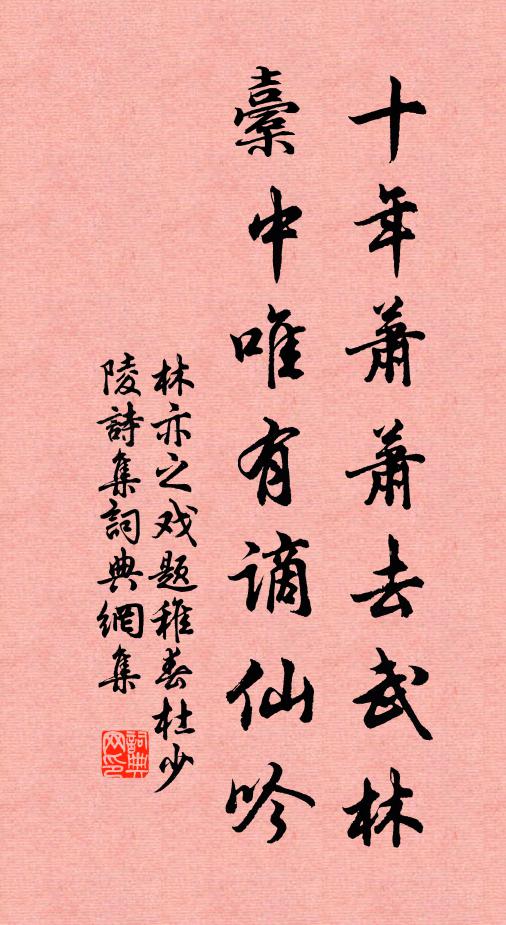 十年蕭蕭去武林
橐中唯有謫仙吟
林亦之戏题稚春杜少
陵詩集詞典網集
詞典
网印